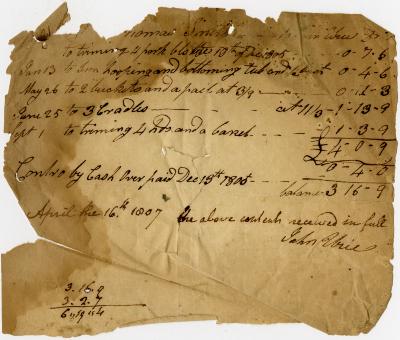 Thomas Smith
to triming 4 pork bls the 10th of Dec 1805 0-7-6
Jan 13 to Iron hooping and bottoming 0-4-6
May 26 to 2 buckets and a pael at 3/9 0-11-3
June 25 to 3 Cradles at 11/3 1-13-9
ept 1 to triming 4 hds and a barrel 0 1-3-9
£ 4-0-9
Contro by Cash Over paid Dec 15th 1805 0-4-0
balance 3 16-9
April the 16th 1807 the above contents received in full
John
3.16.9
3.2.7
6"19"4